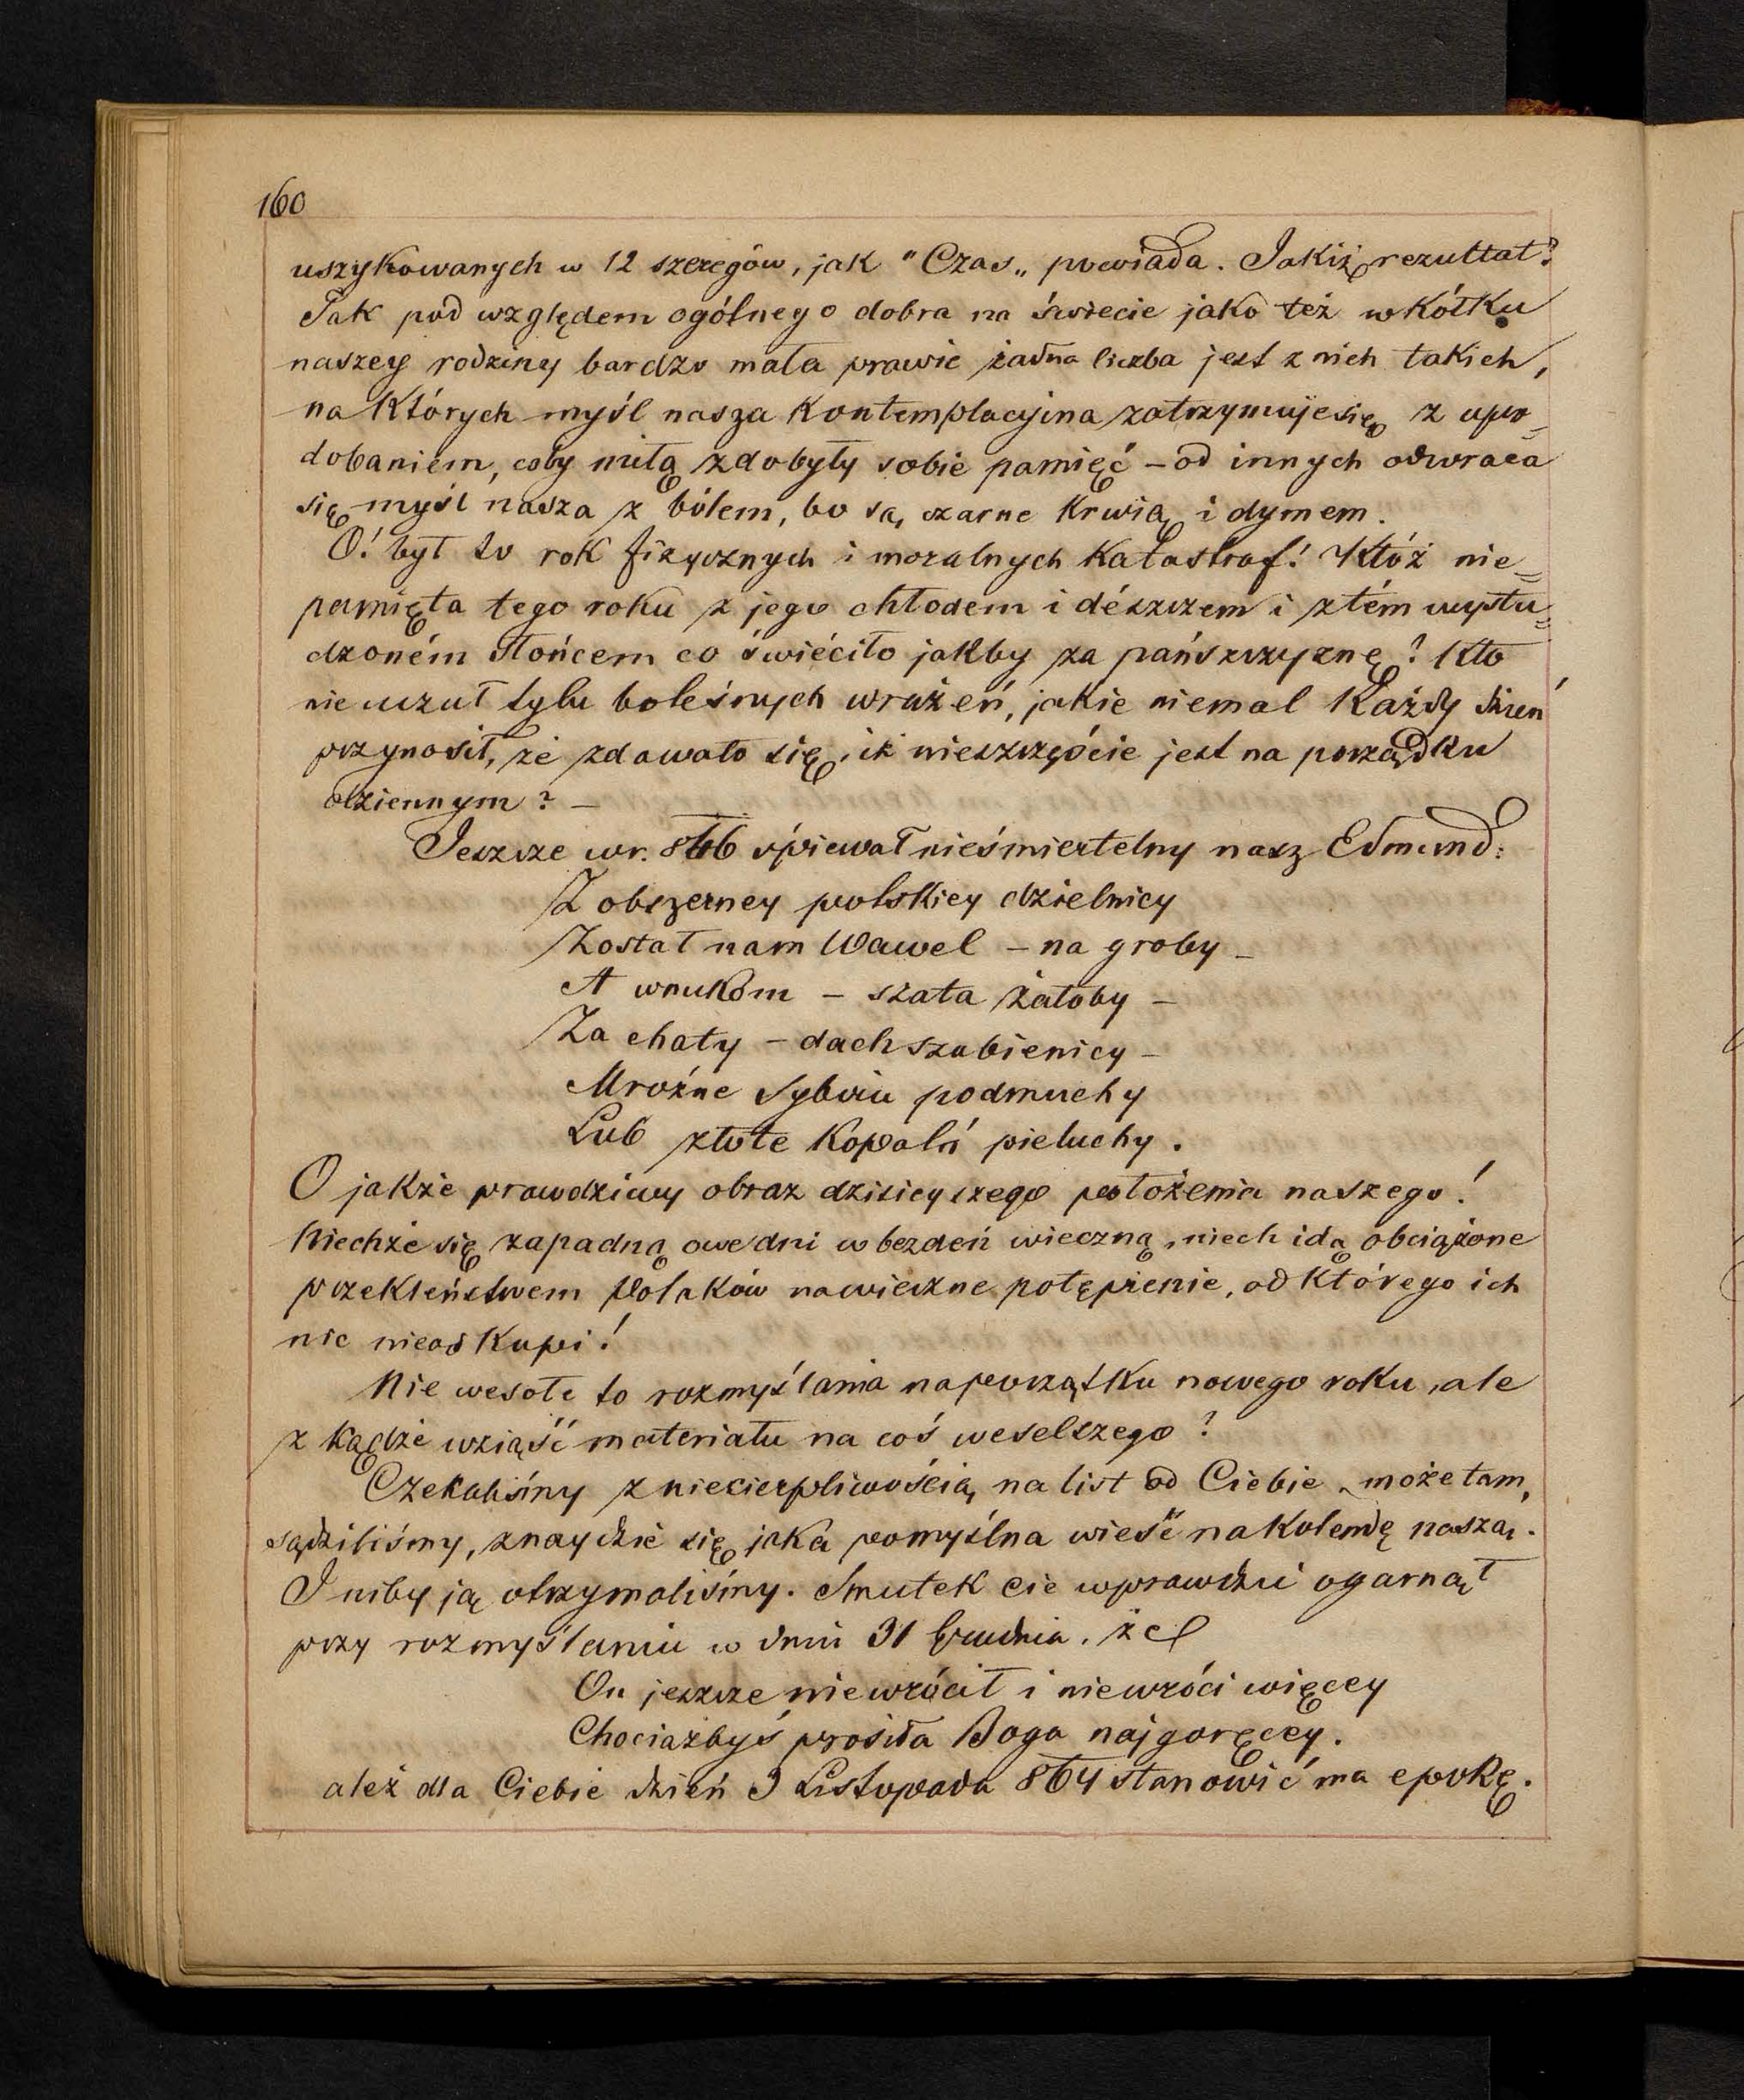 160
uszykowanych w 12 szeregów, jak "Czas„ powiada. Jakiż rezultat?
Tak pod względem ogólnego dobra na świecie jako też w kółku
naszey rodziny bardzo mała prawie żadna liczba jest z nich takich,
na których myśl nasza kontemplacyjna zatrzymuje się z upo-
dobaniem, coby miłą zdobyły sobie pamięć – od innych odwraca
się myśl nasza z bólem, bo są czarne krwią i dymem.
O! był to rok fizycznych i moralnych katastrof! Któż nie=
pamięta tego roku z jego chłodem i dészczem i z tém wystu=
dzoném słońcem co świéciło jakby za pańszczyznę? Kto
nie uczuł tylu boleśnych wrażeń, jakie niemal każdy dzień
przynosił, że zdawało się, iż nieszczęście jest na porządku
dziennym? –
Jeszcze w r. 846 śpiewał nieśmiertelny nasz Edmund:
Z obszerney polskiey dzielnicy
Został nam Wawel – na groby –
A wnukóm – szata żałoby –
Za chaty – dach szubienicy –
Mroźne Sybiru podmuchy
Lub złote kopalń pieluchy.
O jakże prawdziwy obraz dzisieyszego położenia naszego!
Niechże się zapadną owe dni w bezdeń wieczną, niech idą obciążone
przekleństwem Polaków na wieczne potępienie, od którego ich
nic nieodkupi!
Nie wesołe to rozmyślania na początku nowego roku, ale
z kądże wziąść materiału na coś weselszego?
Czekaliśmy z niecierpliwością na list od Ciebie, może tam,
sądziliśmy, znaydzie się jaka pomyślna wieść na kolendę naszą.
I niby ją otrzymaliśmy. Smutek cie wprawdzie ogarnął
przy rozmyślaniu w dniu 31 Grudnia, że
On jeszcze niewrócił i niewróci więcey
Chociażbyś prosiła Boga najgoręcey.
ależ dla Ciebie dzień 3 Listopada 864 stanowić ma epokę.